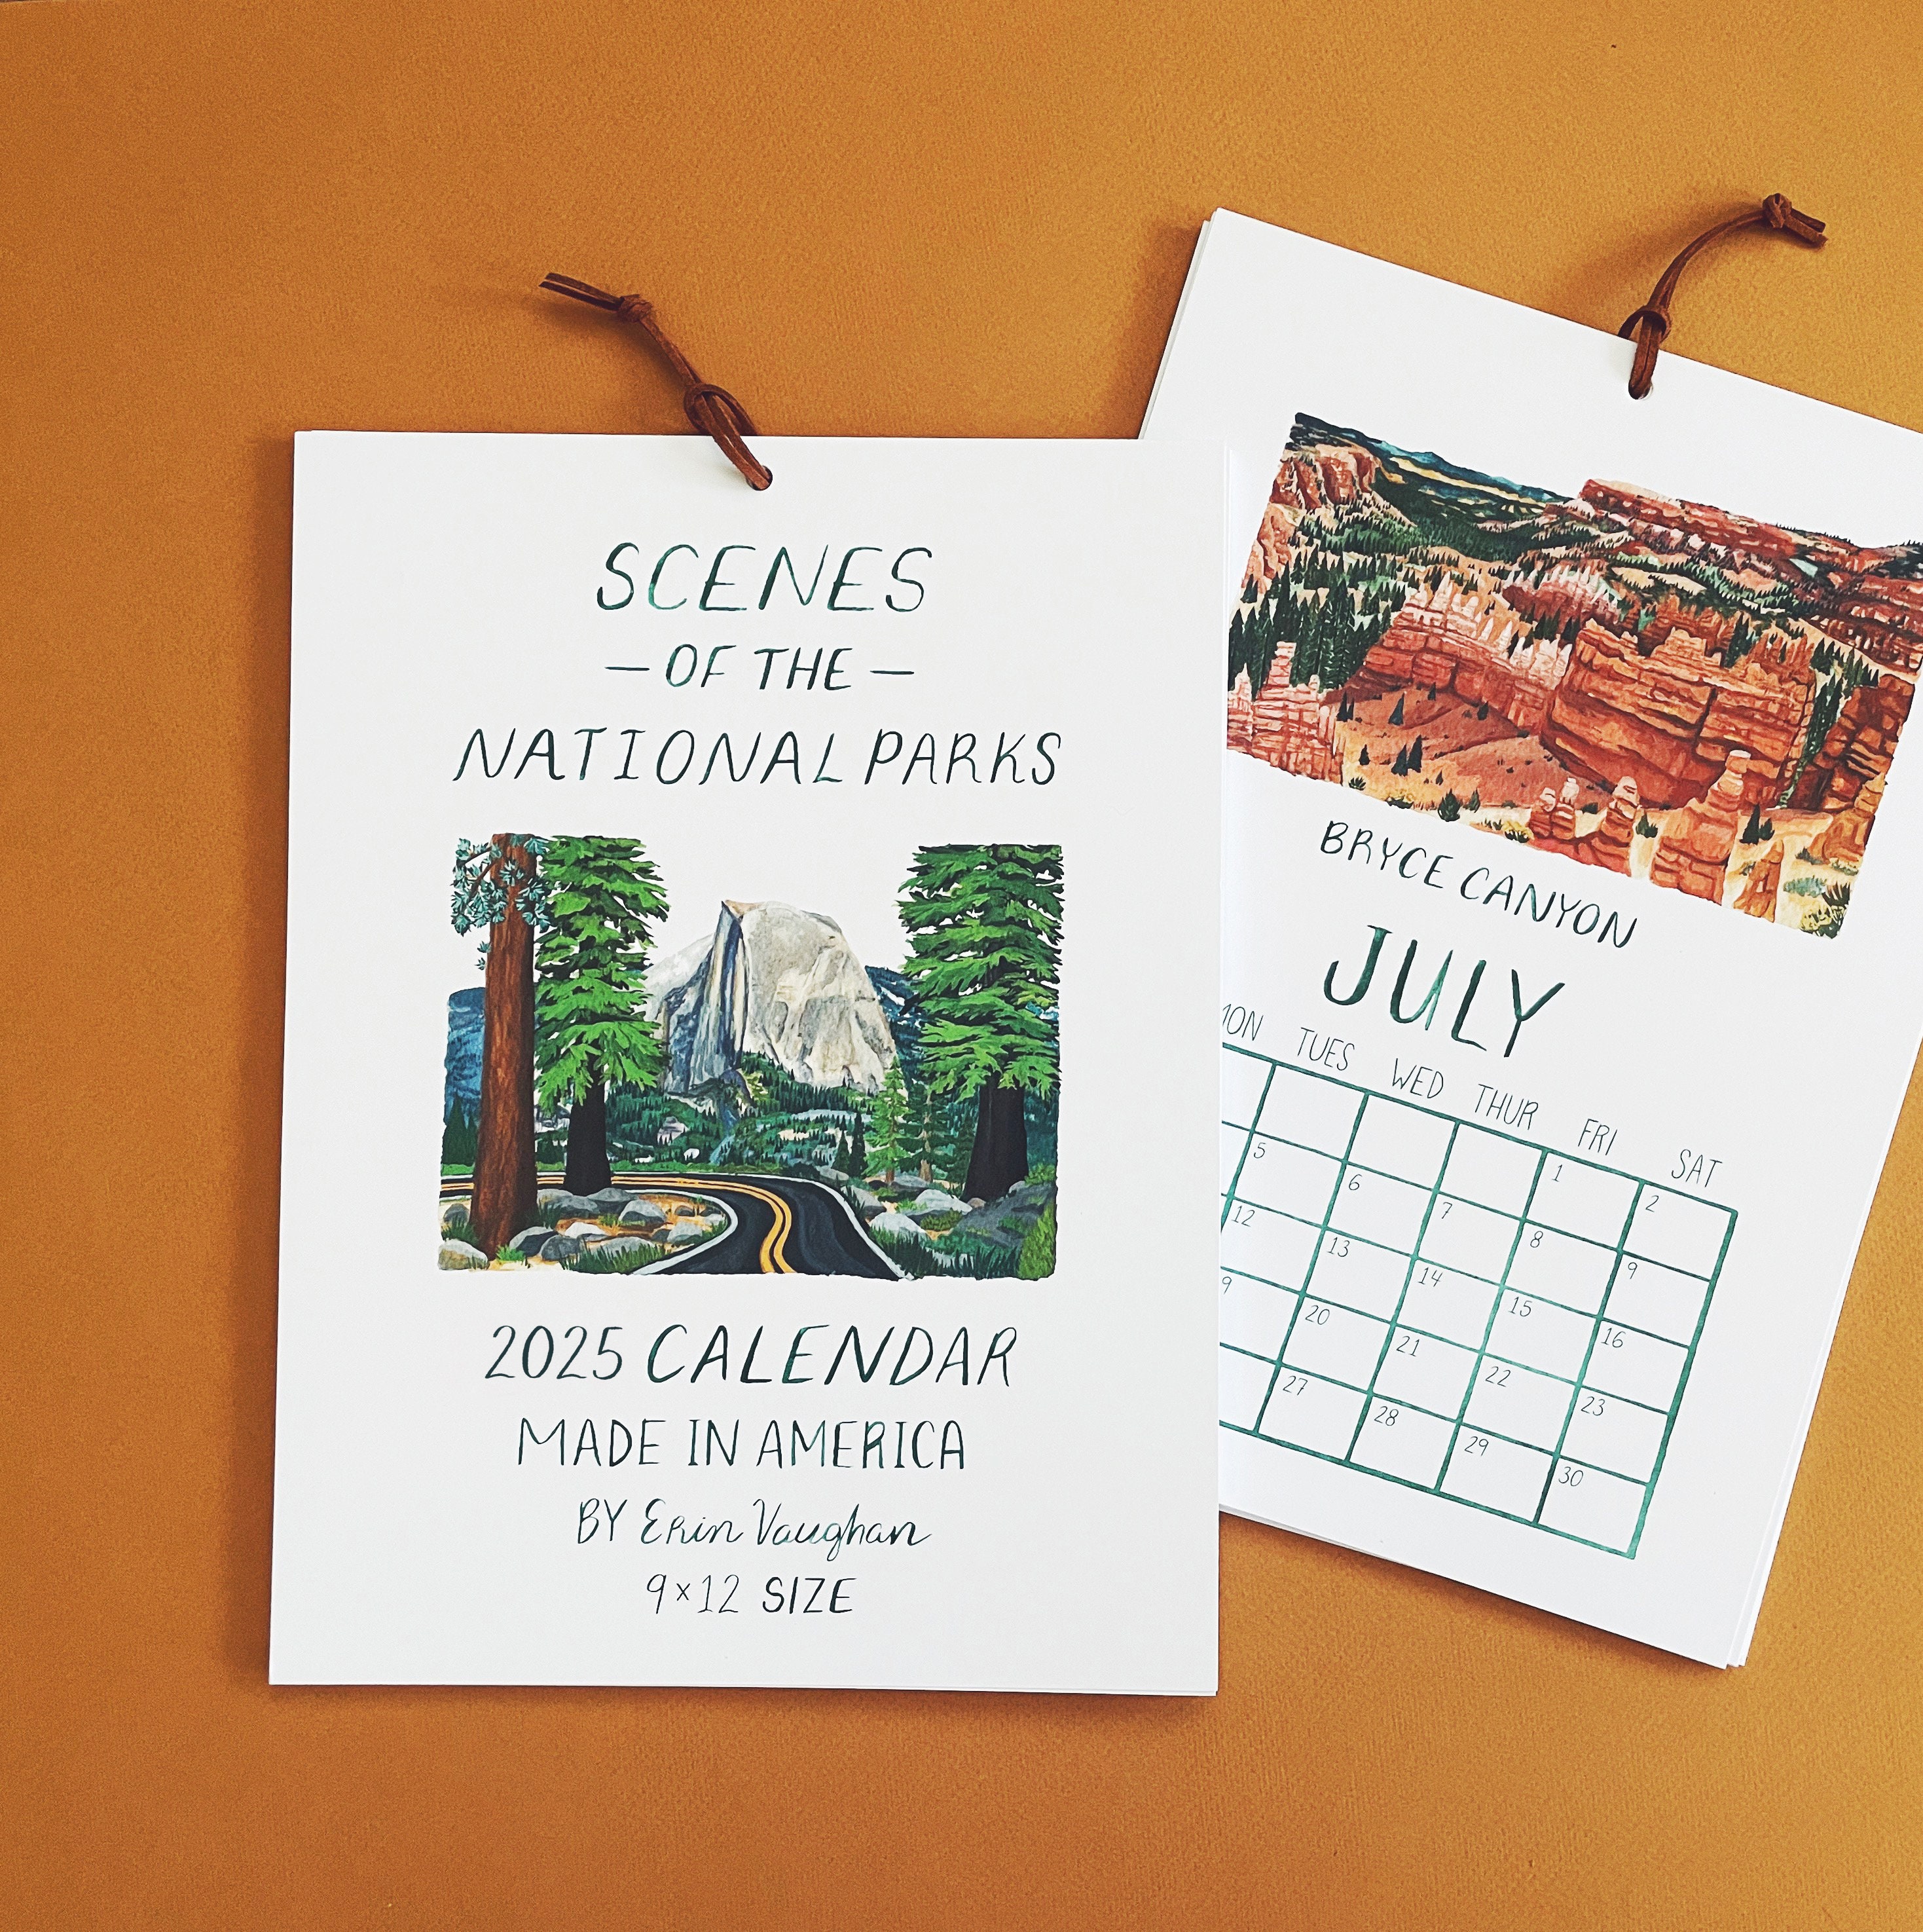 SCENES
— OF THE —
NATIONAL PARKS
2025 CALENDAR
MADE IN AMERICA
BY Erin Vaughan
9×12 SIZE
BRYCE CANYON
JULY
MON TUES WED THUR FRI SAT
1 2
5 6 7 8 9
12 13 14 15 16
9 20 21 22 23
27 28 29 30